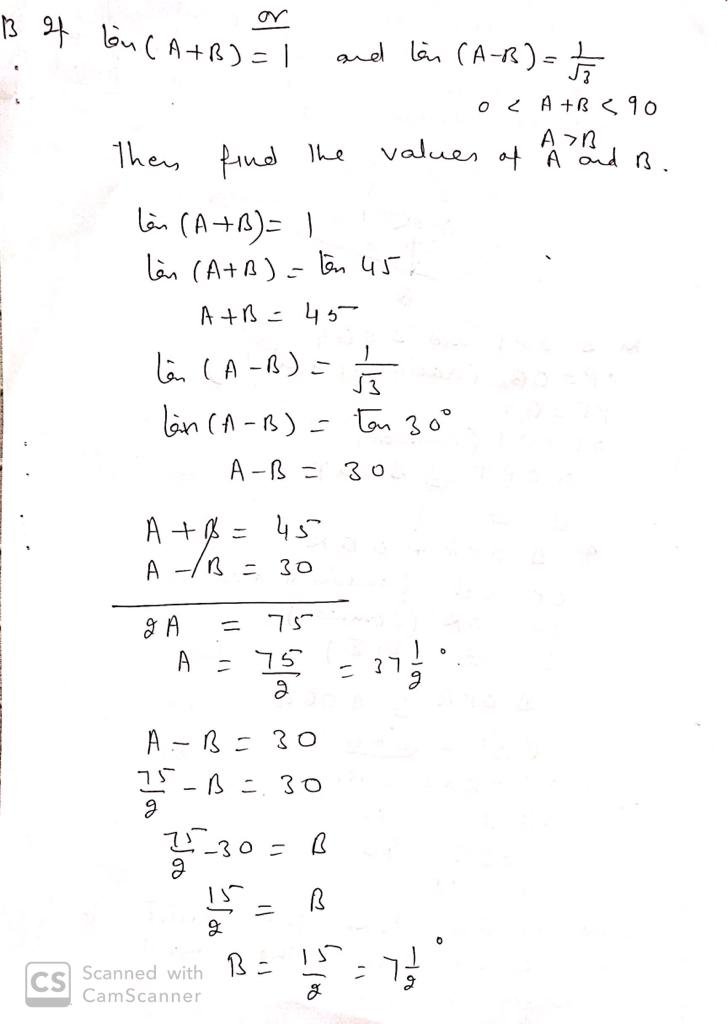 or
B If tan (A+B) = 1 and tan (A-B) = 1/√3
0 < A+B < 90
A>B
Then find the values of A and B.
tan (A+B) = 1
tan (A+B) = tan 45
A+B = 45
tan (A-B) = 1/√3
tan (A-B) = tan 30°
A-B = 30
A + B = 45
A - B = 30
2A = 75
A = 75/2 = 37 1/2°.
A - B = 30
75/2 - B = 30
75/2 - 30 = B
15/2 = B
B = 15/2 = 7 1/2°
CS Scanned with
CamScanner